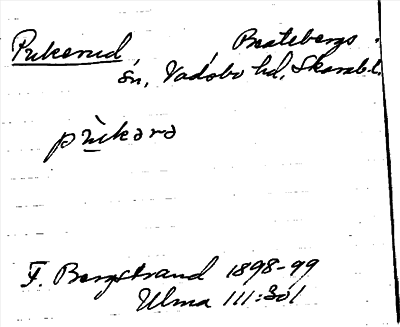 Prikerud, Beatebergs
sn, Vadsbo hd, Skarab.l.
prìkərə
F. Bergstrand 1898-99
Ulma 111:301